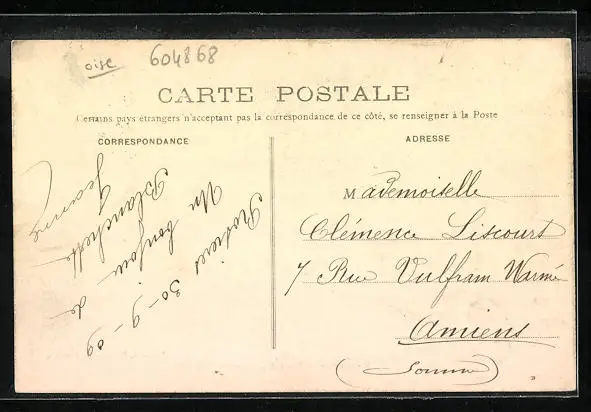 oise
604868
CARTE POSTALE
Certains pays étrangers n'acceptant pas la correspondance de ce côté, se renseigner à la Poste
CORRESPONDANCE
30-9-09
Un bonjour de
Blanchette
Jeanne
ADRESSE
Mademoiselle
Clémence Liscourt
7 Rue Vulfram Warmé
Amiens
(Somme)